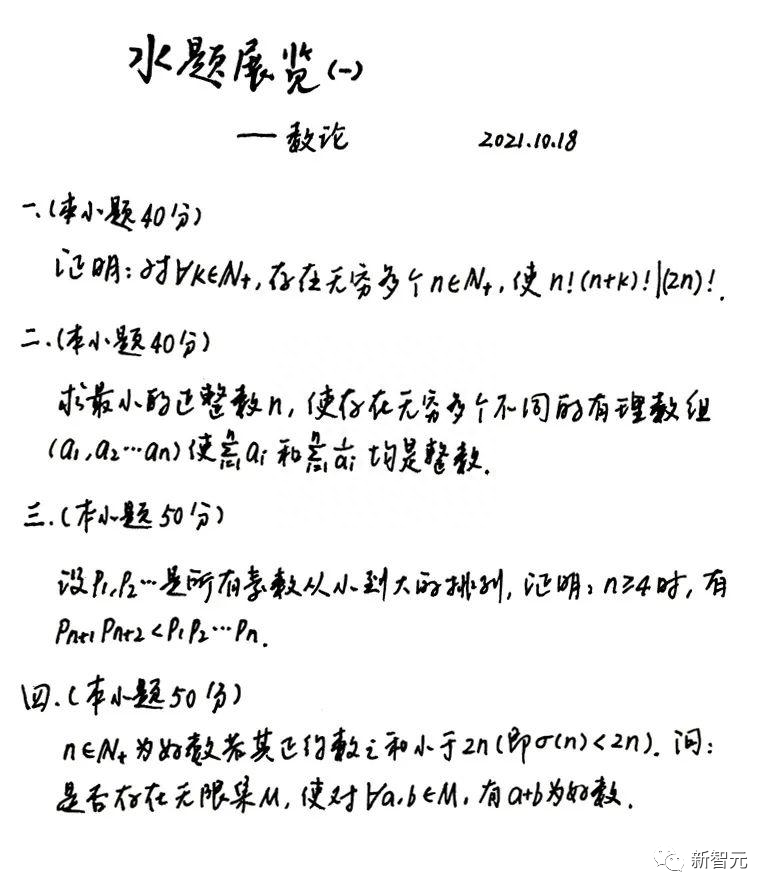 水题展览(一)
— 数论 2021.10.18
一.(本小题40分)
证明:对∀k∈N₊,存在无穷多个n∈N₊,使 n!(n+k)!|(2n)!.
二.(本小题40分)
求最小的正整数n,使存在无穷多个不同的有理数组
(a₁,a₂…aₙ)使∑ⁿᵢ₌₁aᵢ和∑ⁿᵢ₌₁1/aᵢ均是整数.
三.(本小题50分)
设P₁,P₂…是所有素数从小到大的排列,证明:n≥4时,有
Pₙ₊₁Pₙ₊₂<P₁P₂…Pₙ.
四.(本小题50分)
n∈N₊为好数若其正约数之和小于2n(即σ(n)<2n).问:
是否存在无限集M,使对∀a,b∈M,有a+b为好数.
新智元